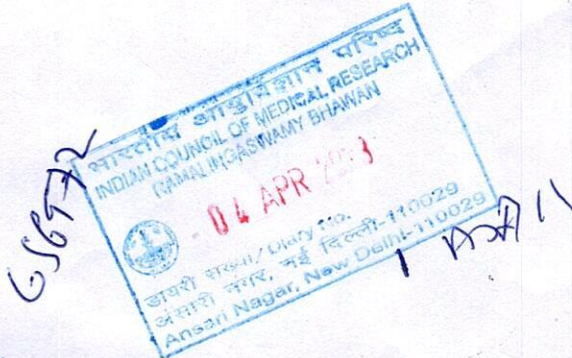 भारतीय आयुर्विज्ञान परिषद
INDIAN COUNCIL OF MEDICAL RESEARCH
RAMALINGASWAMY BHAWAN
04 APR
डायरी संख्या/Diary No.
अंसारी नगर, नई दिल्ली-110029
Ansari Nagar, New Delhi-110029